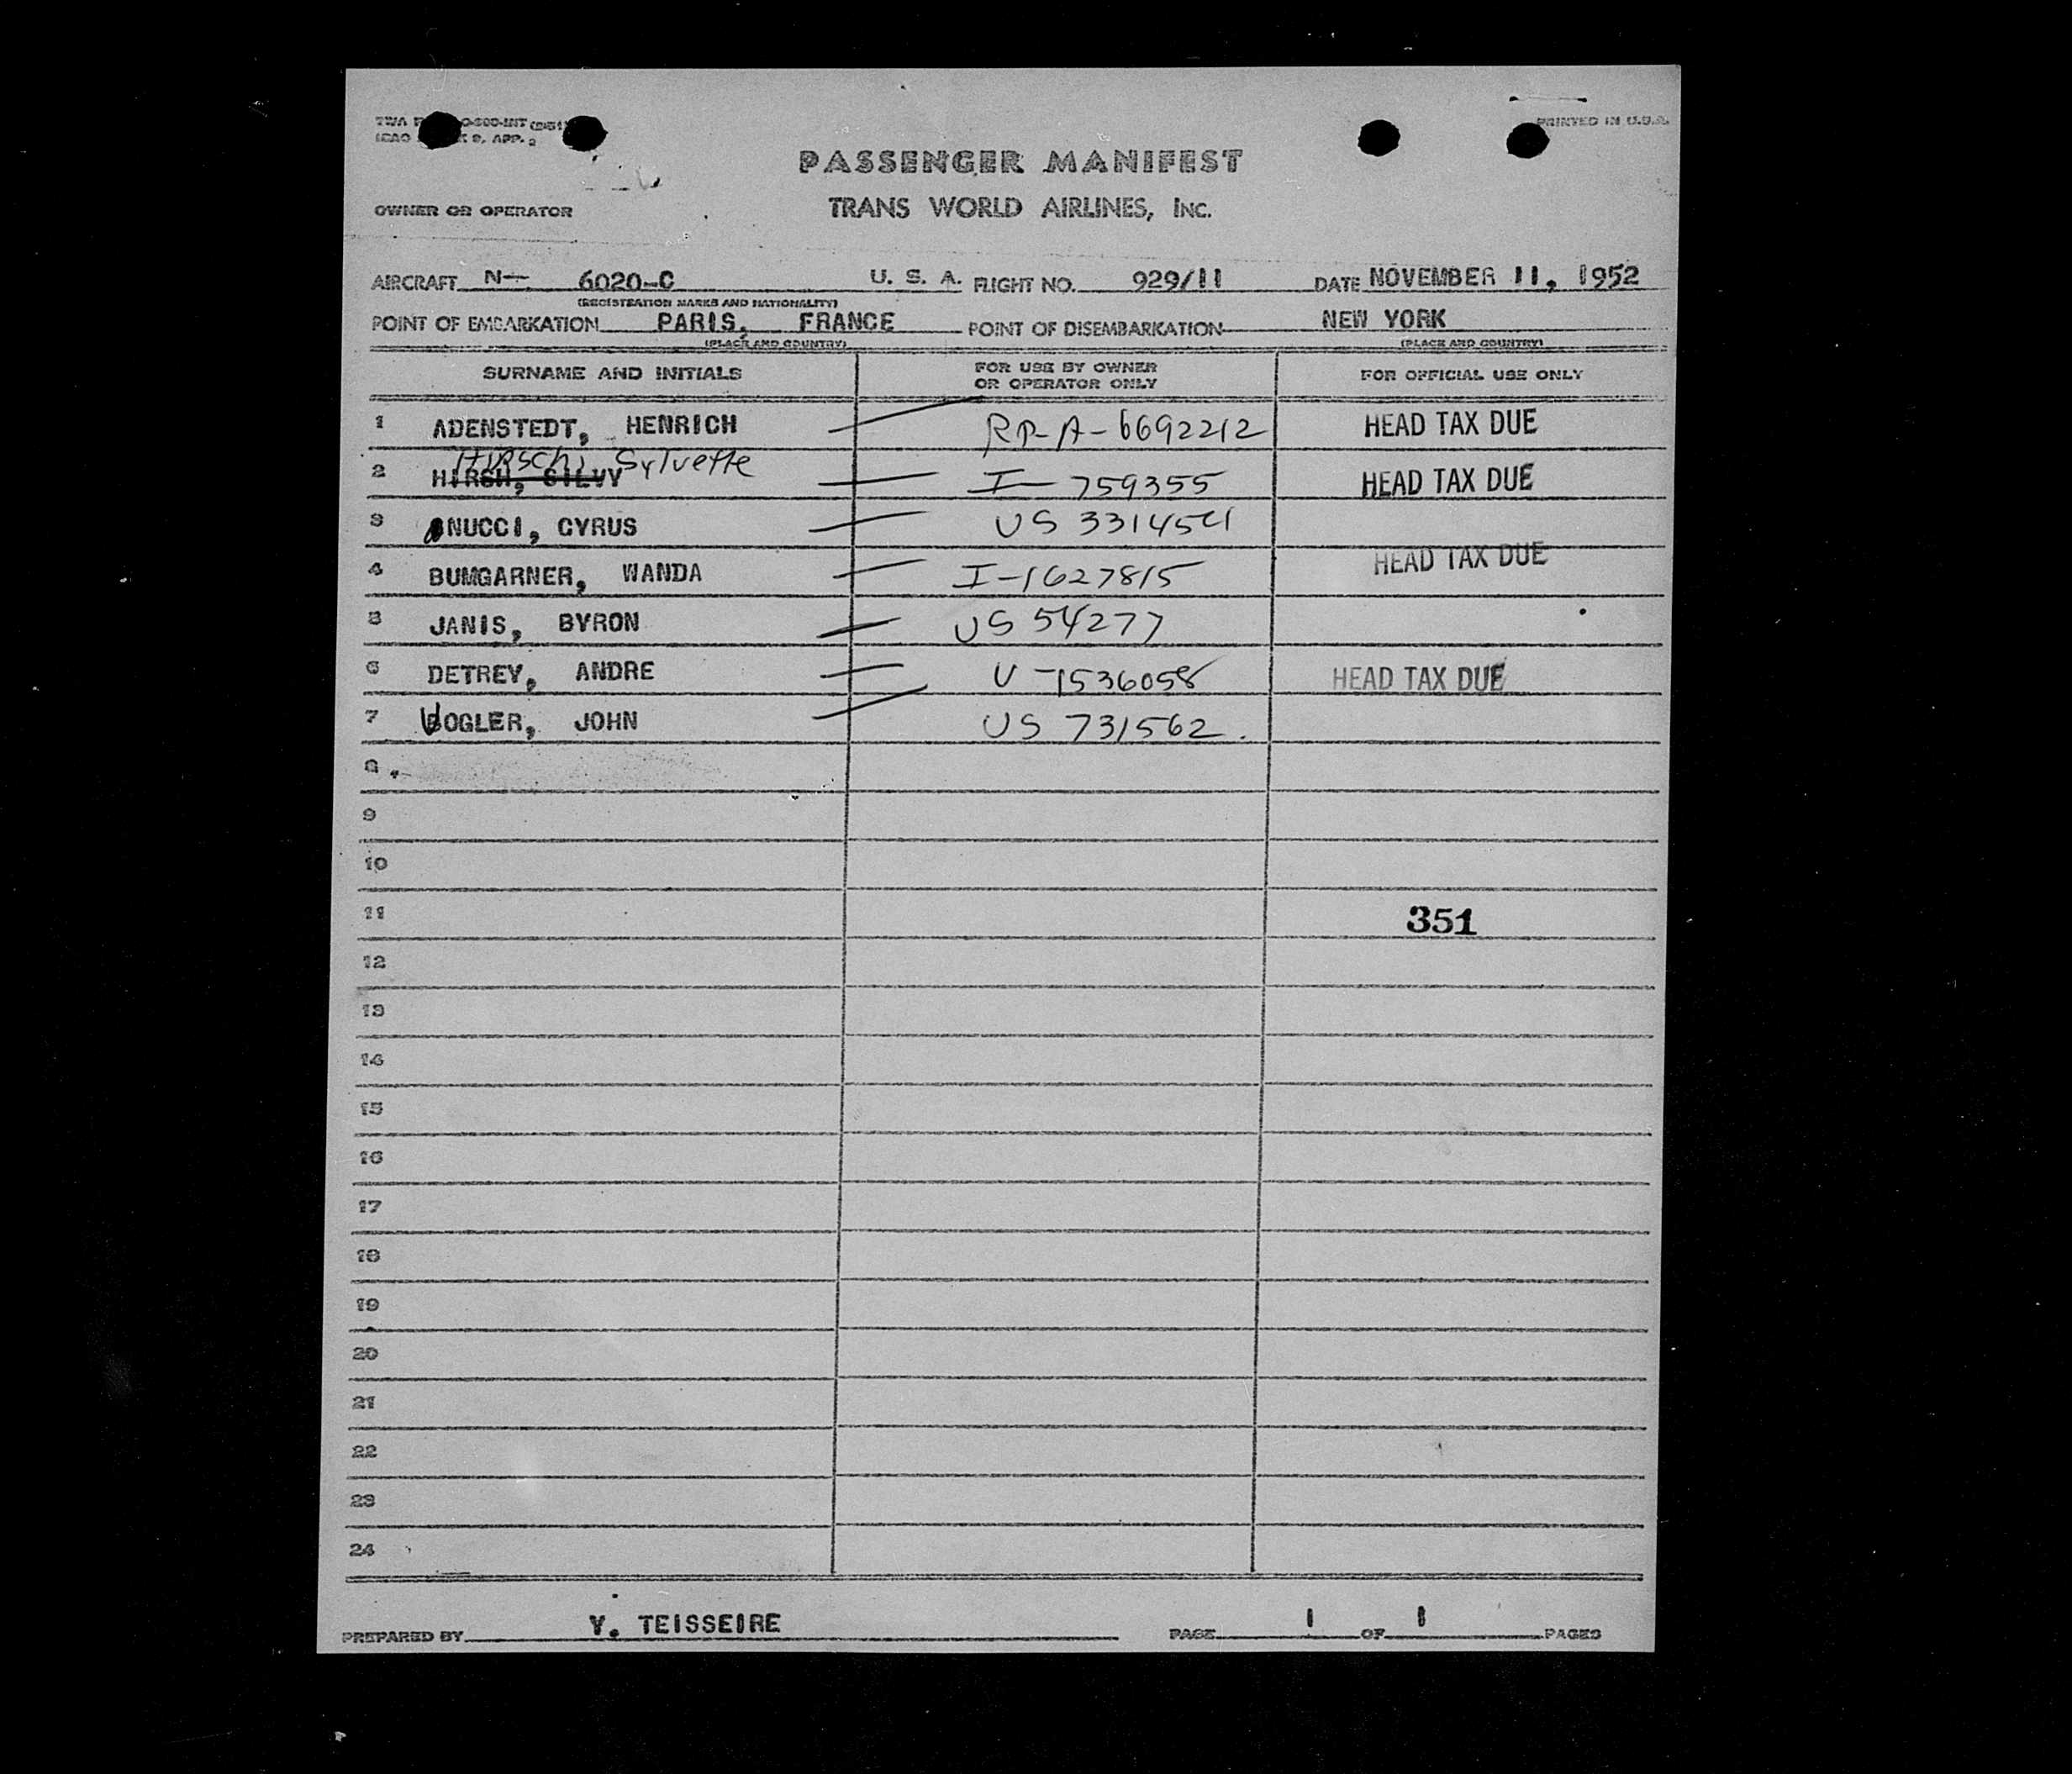 PRINTED IN U.S.A.
PASSENGER MANIFEST
OWNER OR OPERATOR TRANS WORLD AIRLINES, INC.
AIRCRAFT N- 6020-C U. S. A. FLIGHT NO. 929/11 DATE NOVEMBER 11, 1952
(REGISTRATION MARKS AND NATIONALITY)
POINT OF EMBARKATION PARIS, FRANCE POINT OF DISEMBARKATION NEW YORK
(PLACE AND COUNTRY) (PLACE AND COUNTRY)
SURNAME AND INITIALS FOR USE BY OWNER OR OPERATOR ONLY FOR OFFICIAL USE ONLY
1 ADENSTEDT, HENRICH RP-A-6692212 HEAD TAX DUE
Hirschi Sylvette
2 HIRSH, SILVY I-759355 HEAD TAX DUE
3 NUCCI, CYRUS US 331454
4 BUMGARNER, WANDA I-1627815 HEAD TAX DUE
5 JANIS, BYRON US 54277
6 DETREY, ANDRE V-1536058 HEAD TAX DUE
7 VOGLER, JOHN US 731562.
8
9
10
11 351
12
13
14
15
16
17
18
19
20
21
22
23
24
PREPARED BY Y. TEISSEIRE PAGE 1 OF 1 PAGES